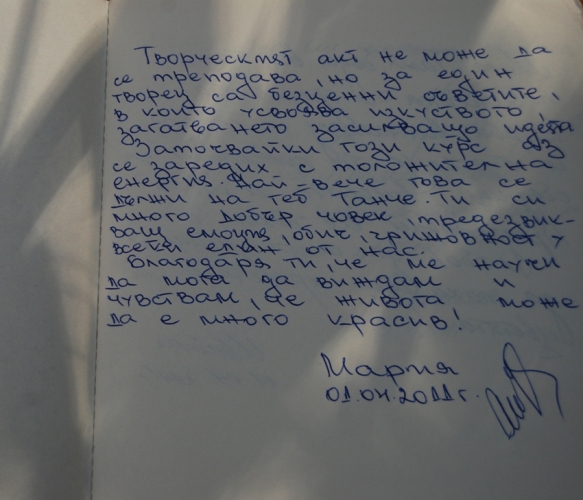 Творческият акт не може да
се преподава, но за един
творец са безценни съветите,
в които усвоява изкуството,
загатването засилващо идеята.
Започвайки този курс аз
се заредих с положителна
енергия. Най-вече това се
дължи на теб Танче. Ти си
много добър човек, предизвик-
ваш емоция, обич,
всеки един от нас.
Благодаря ти, че ме научи
да мога да виждам и
чувствам, че живота може
да е много красив!
Мария
01.04.2011г.